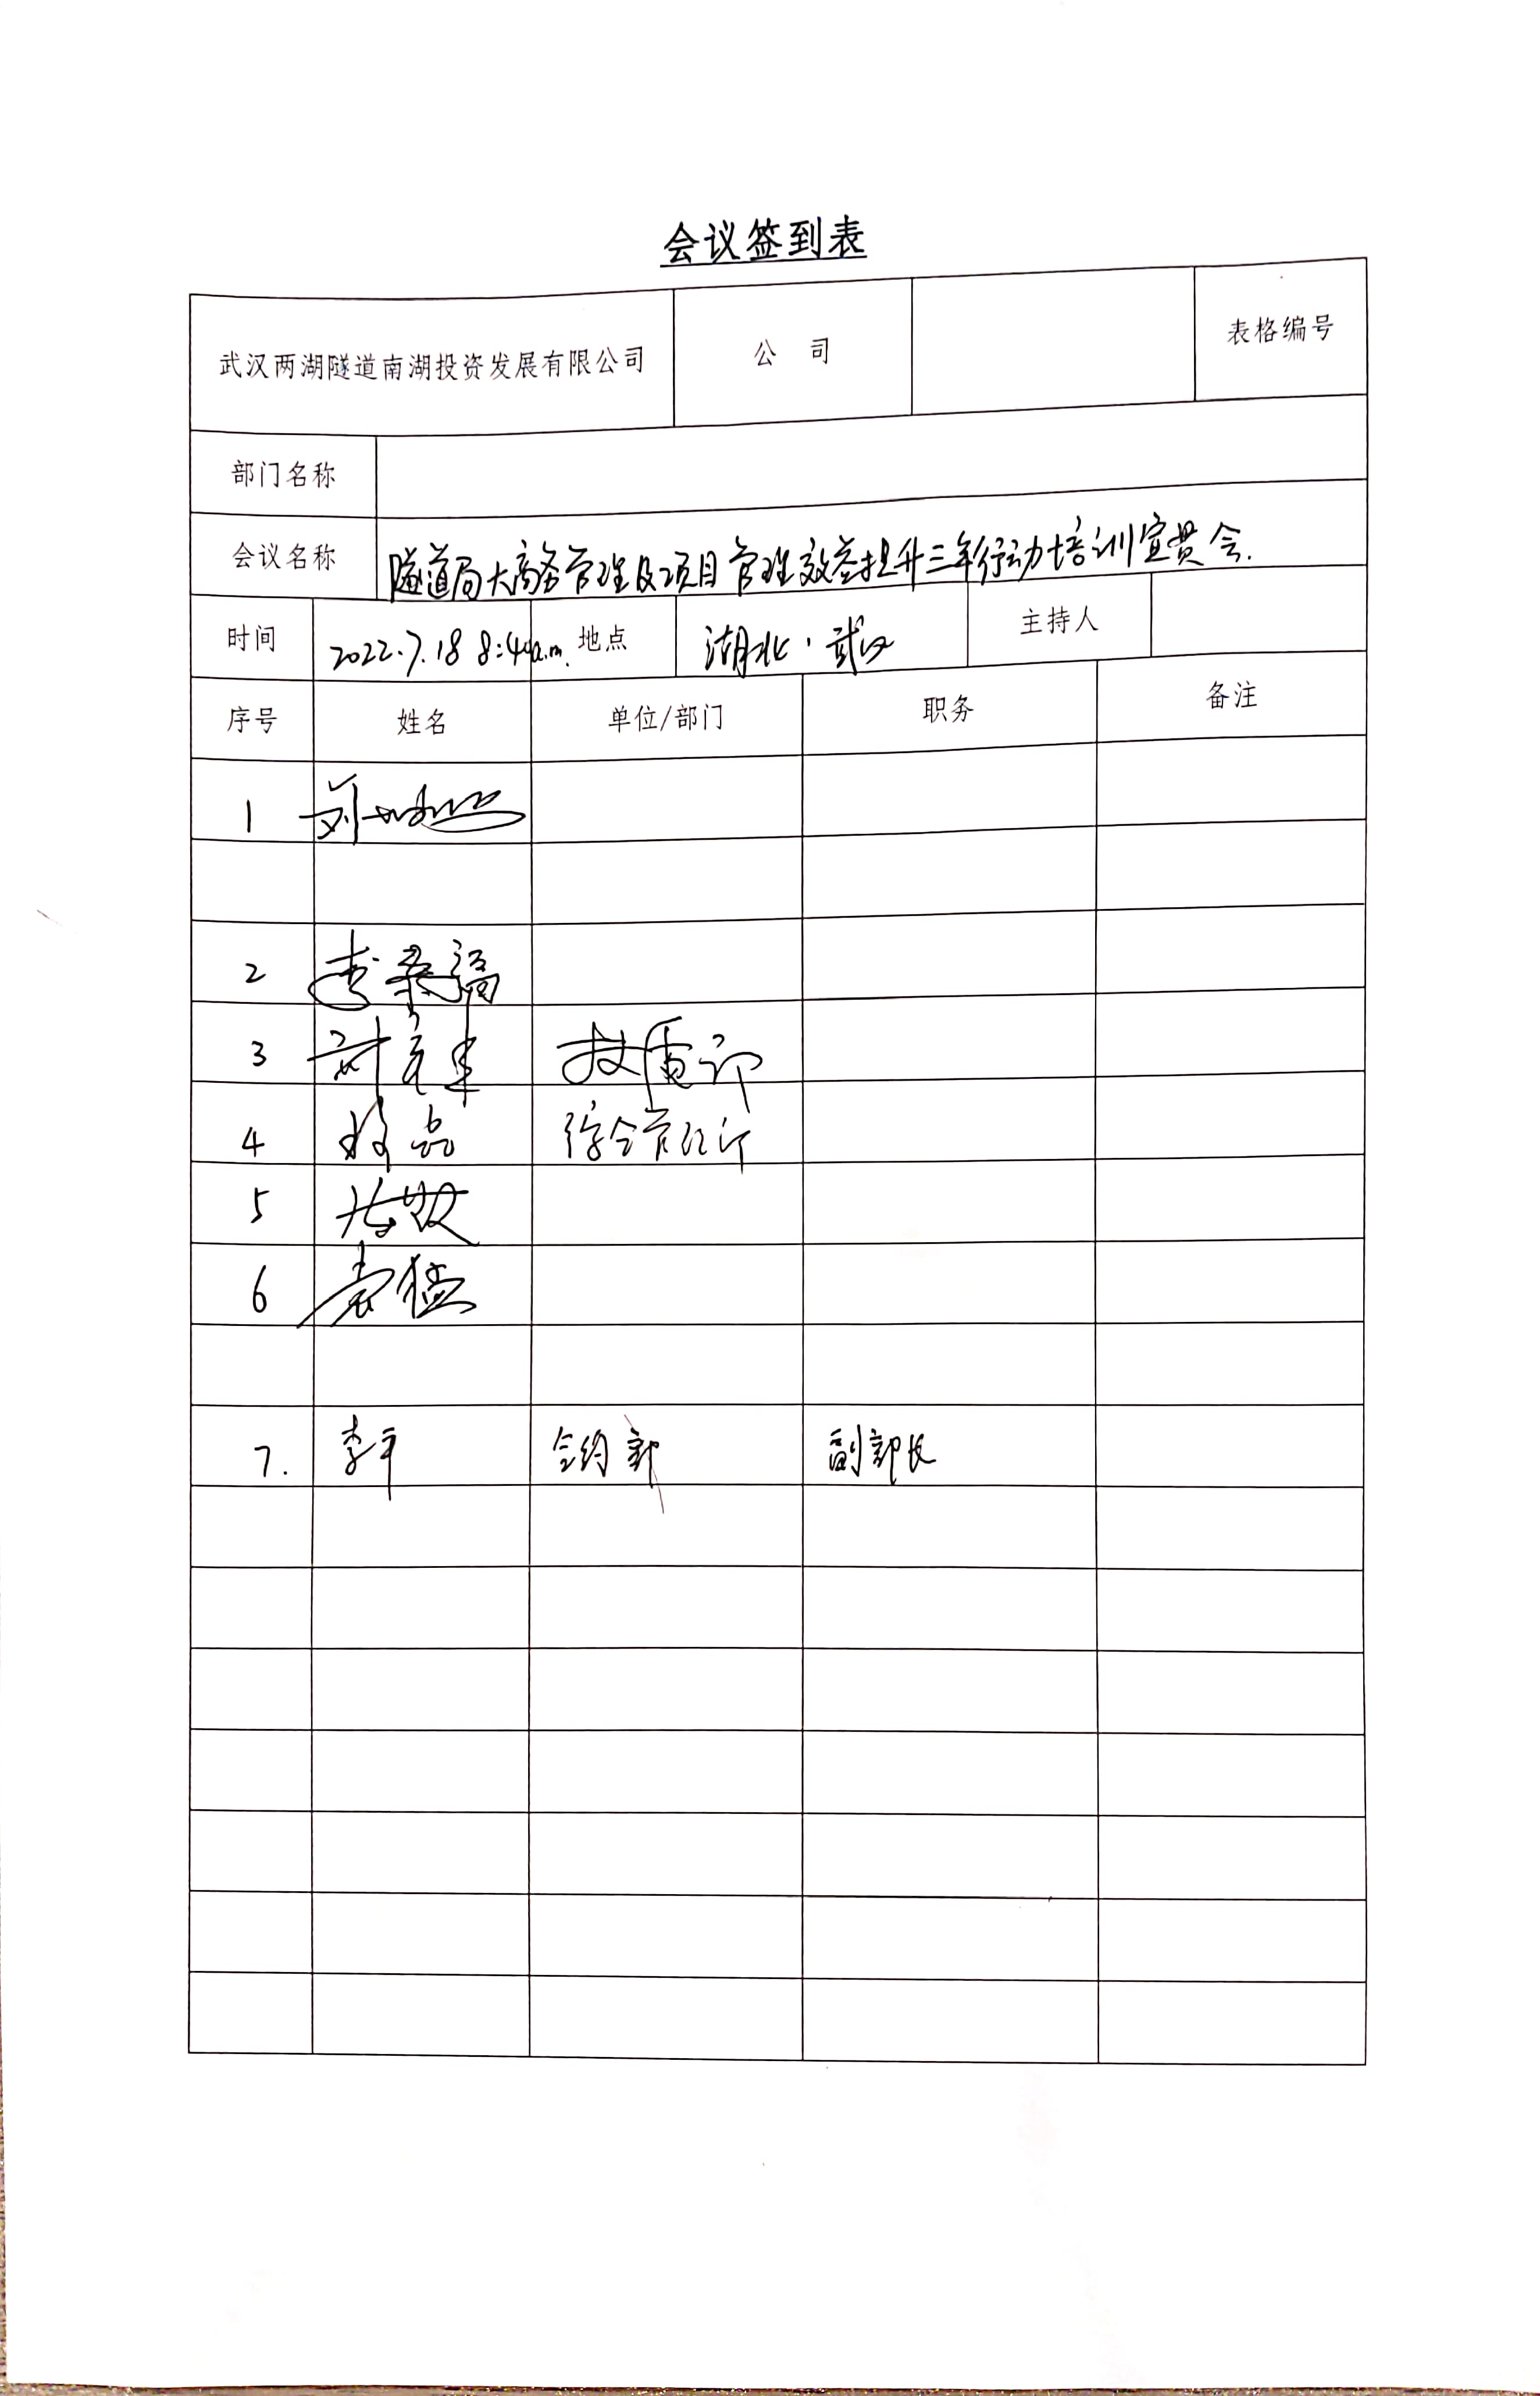 会议签到表
武汉两湖隧道南湖投资发展有限公司 公 司 表格编号
部门名称
会议名称 隧道局大商务管理及项目管理效益提升三年行动培训宣贯会.
时间 2022.7.18 8:40a.m. 地点 湖北·武汉 主持人
序号 姓名 单位/部门 职务 备注
1
2 李荣福
3
4 综合管理部
5
6 袁猛
7. 李平 合约部 副部长